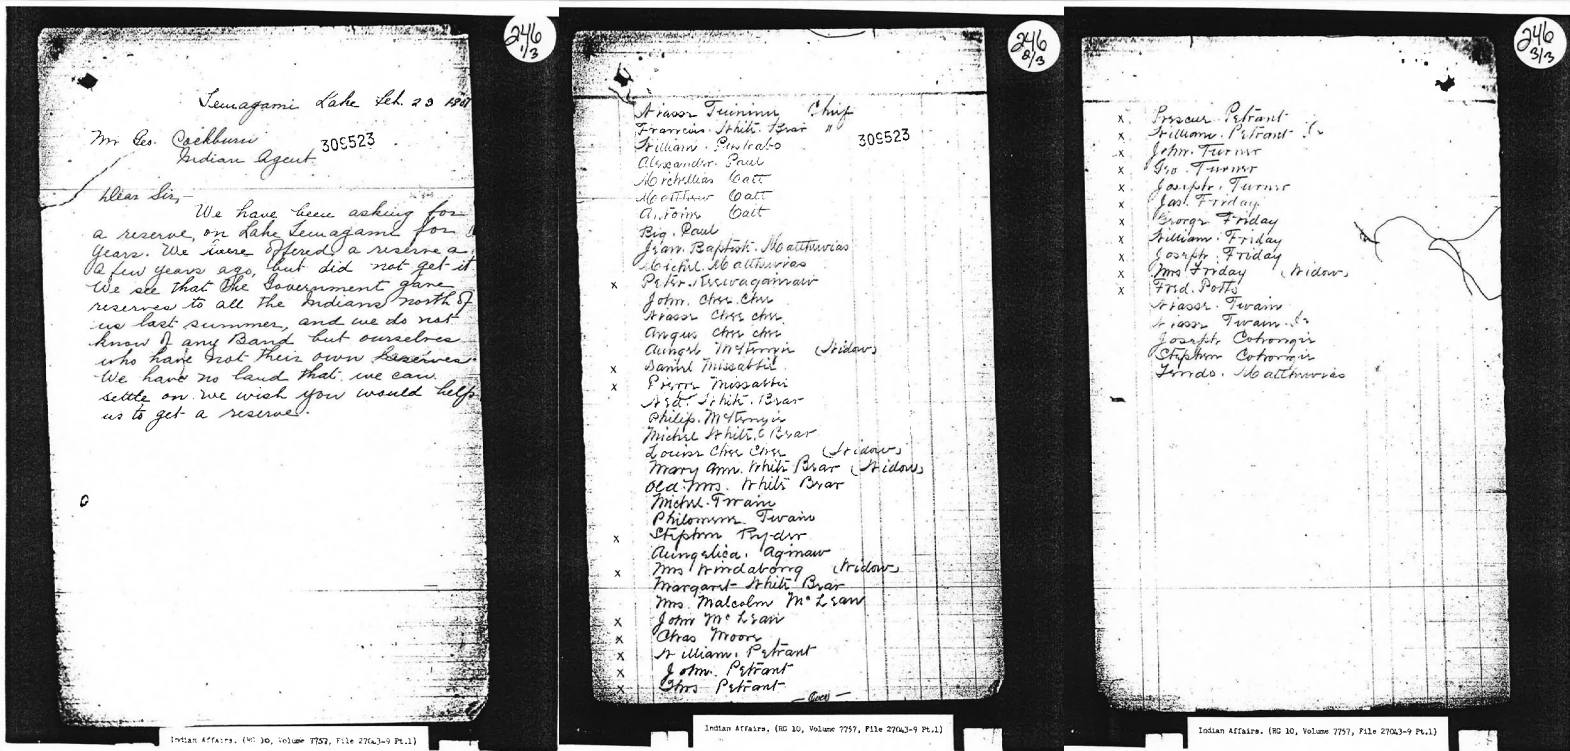 246
1/3
Temagami Lake Feb. 23
Mr Geo. Cockburn
309523
Indian Agent
Dear Sir,-
We have been asking for
a reserve, on Lake Temagami for
years. We were offered a reserve a
a few years ago, but did not get it
We see that the Government gave
reserves to all the Indians North of
us last summer, and we do not
know of any Band but ourselves
who have not their own Reserves.
We have no land that we can
settle on. we wish you would help
us to get a reserve.
Indian Affairs. (RG 10, Volume 7757, File 27043-9 Pt.1)
246
2/3
Chief
Francois White Bear "
309523
William
Alexander Paul
Catt
Matthew Catt
Antoine Catt
Big Paul
Jean Baptist Matthewias
Michel Matthewias
x Peter
John Chee Chee
Chee chee
Angus Chee chee
(Widow)
x Daniel Missabbi
x Pierre Missabbi
White Bear
Philip
Michel White Bear
Louise Chee Chee (Widow)
Mary Ann White Bear (Widow)
Old Mrs. White Bear
Michel Twain
Philomene Twain
x Stephen Ryder
Aungelica
x Mrs Windabong (Widow)
Margaret White Bear
Mrs. Malcolm McLean
x John McLean
x Chas Moore
x William Petrant
x John Petrant
x Petrant
(over)
Indian Affairs. (RG 10, Volume 7757, File 27043-9 Pt.1)
246
3/3
x Petrant
x William Petrant Jr
x John Turner
x Geo Turner
x Joseph Turner
x Jas. Friday
x George Friday
x William Friday
x Joseph Friday
x Mrs Friday (Widow)
x Fred. Potts
Twain
Twain Jr
Joseph
Stephen
Matthewias
Indian Affairs. (RG 10, Volume 7757, File 27043-9 Pt.1)